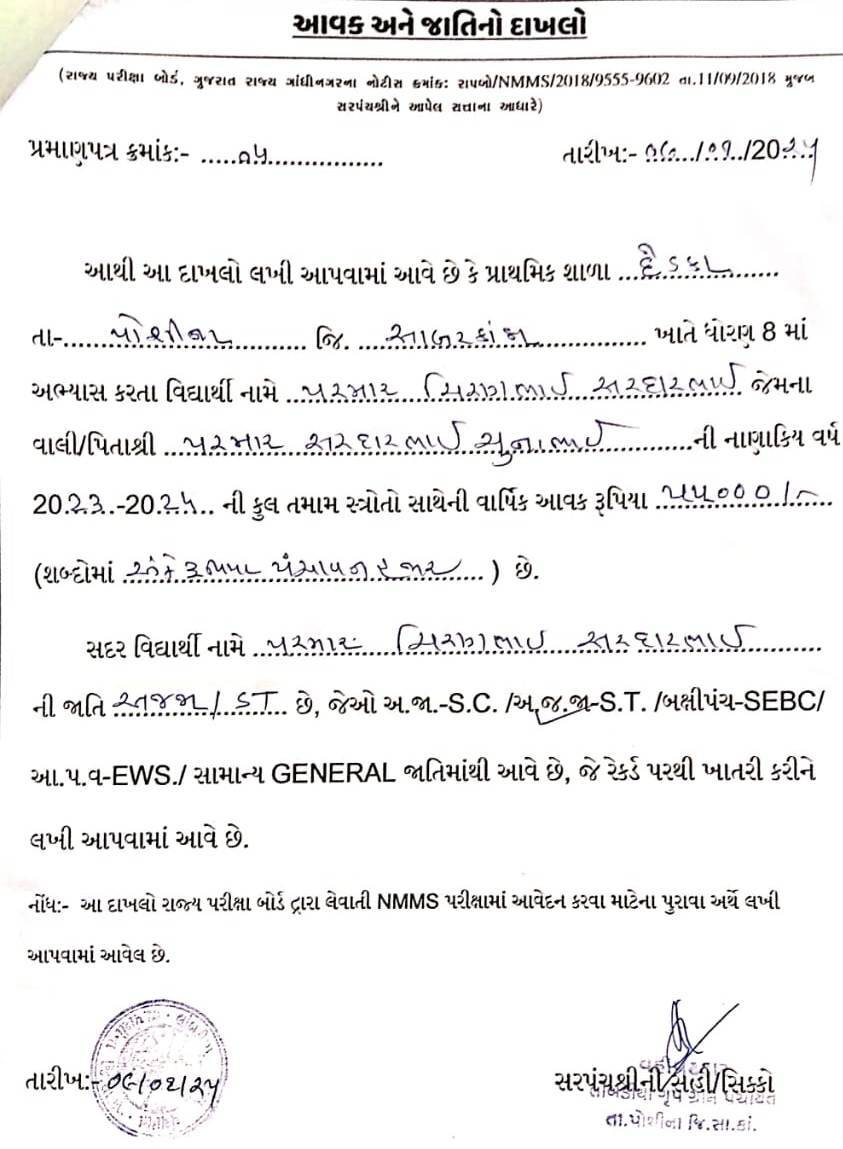 આવક અને જાતિનો દાખલો
(રાજ્ય પરીક્ષા બોર્ડ, ગુજરાત રાજ્ય ગાંધીનગરના નોટીસ ક્રમાંક: રાપબો/NMMS/2018/9555-9602 તા.11/09/2018 મુજબ
સરપંચશ્રીને આપેલ સત્તાના આધારે)
પ્રમાણપત્ર ક્રમાંક:- .....૦૫................. તારીખ:- .../.../20૨૫
આથી આ દાખલો લખી આપવામાં આવે છે કે પ્રાથમિક શાળા ......................
તા-.....પોશીના............ જિ. ...સાબરકાંઠા................ ખાતે ધોરણ 8 માં
અભ્યાસ કરતા વિદ્યાર્થી નામે ..પરમાર કિરણભાઈ સરદારભાઈ જેમના
વાલી/પિતાશ્રી ...પરમાર સરદારભાઈ ............ની નાણાકિય વર્ષ
20.૨૩.-20.૨૫.. ની કુલ તમામ સ્ત્રોતો સાથેની વાર્ષિક આવક રૂપિયા ..૫૫૦૦૦/-....
(શબ્દોમાં ..અંકે રૂપિયા પંચાવન હજાર...... ) છે.
સદર વિદ્યાર્થી નામે ..પરમાર કિરણભાઈ સરદારભાઈ........
ની જાતિ અજજા/ST... છે, જેઓ અ.જા.-S.C. /અ.જ.જા-S.T. /બક્ષીપંચ-SEBC/
આ.પ.વ-EWS./ સામાન્ય GENERAL જાતિમાંથી આવે છે, જે રેકર્ડ પરથી ખાતરી કરીને
લખી આપવામાં આવે છે.
નોંધ:- આ દાખલો રાજ્ય પરીક્ષા બોર્ડ દ્વારા લેવાતી NMMS પરીક્ષામાં આવેદન કરવા માટેના પુરાવા અર્થે લખી
આપવામાં આવેલ છે.
વહીવટદાર
તારીખ:- સરપંચશ્રીની સહી/સિક્કો
ગૃપ ગ્રામ પંચાયત
તા.પોશીના જિ.સા.કાં.